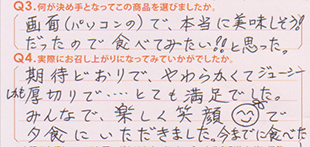 Q3.何が決め手となってこの商品を選びましたか。
画面(パソコンの)で、本当に美味しそう!
だったので食べてみたい!!と思った。
Q4.実際にお召し上がりになってみていかがでしたか。
期待どおりで、やわらかくてジューシー
しかも厚切りで‥‥とても満足でした。
みんなで、楽しく笑顔で
夕食にいただきました。今までに食べた